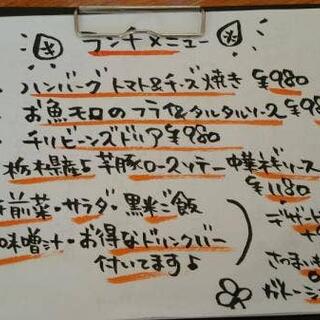 ランチメニュー
・ハンバーグ トマト&チーズ焼き ¥980
・お魚モロのフライ&タルタルソース ¥9
・チリビーンズドリア ¥980
栃木県産 芋豚ロースソテー 中華ネギソース
¥1180
前菜・サラダ・黒米ご飯
味噌汁・お得なドリンクバー
付いてます♪
デザート
さつまいも
ガトーショ